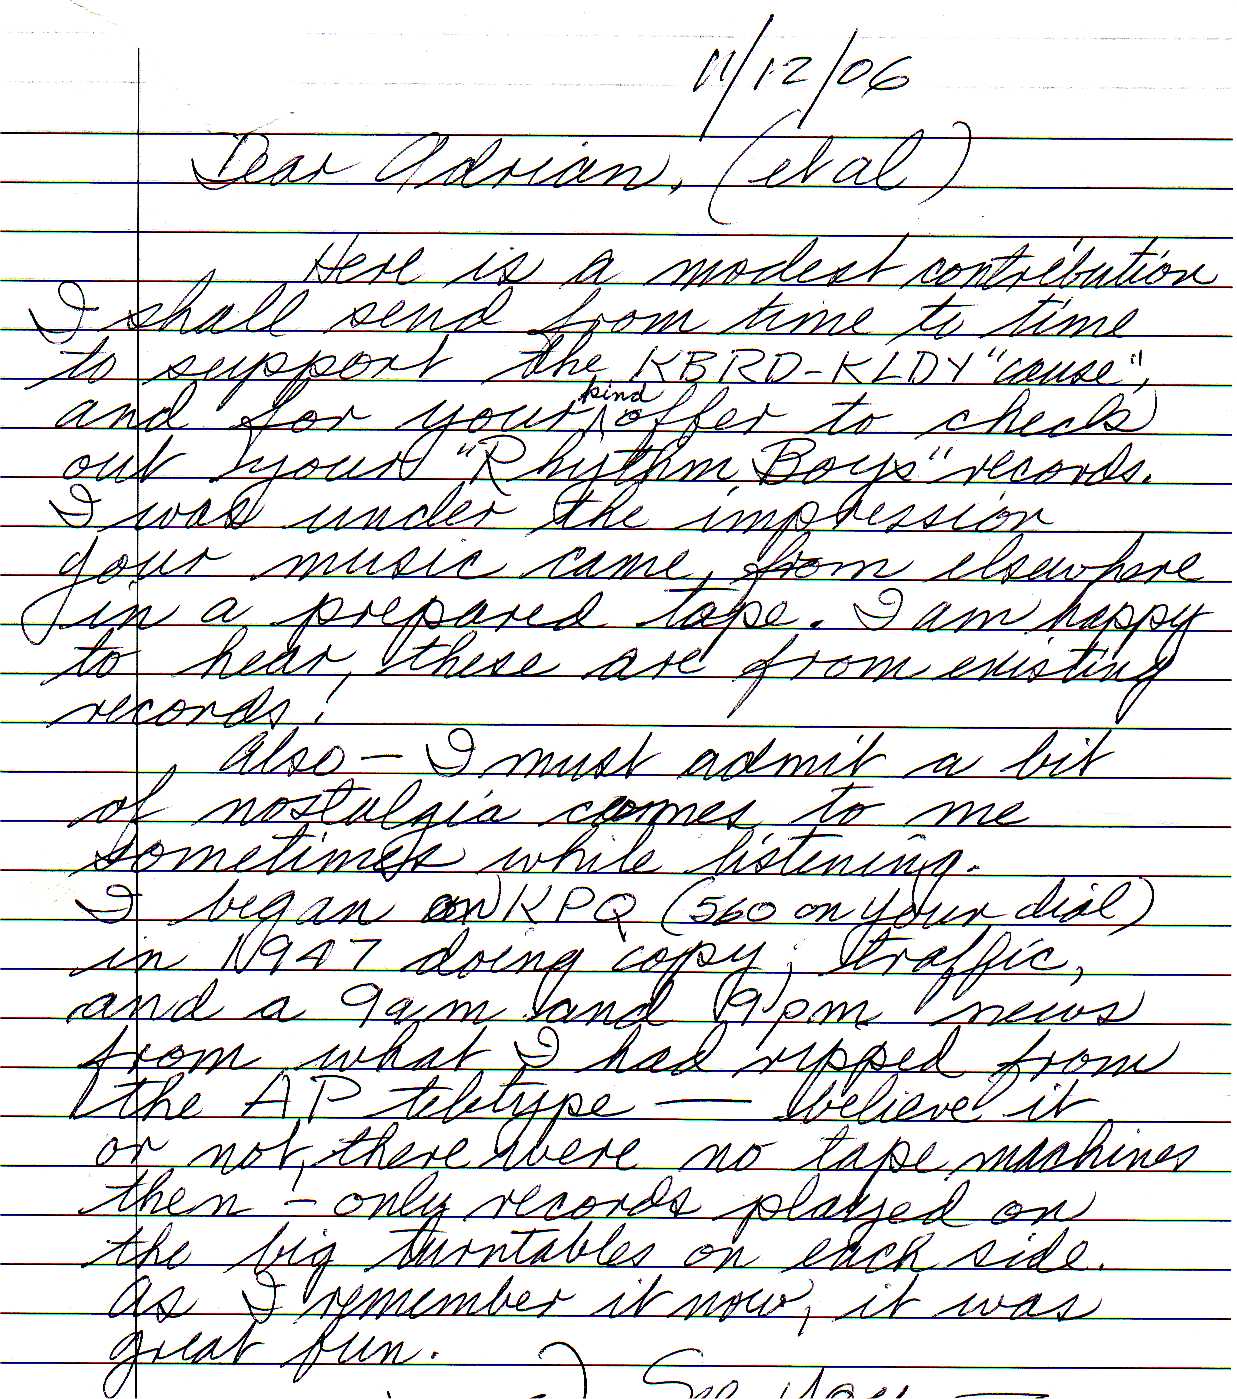 11/12/06
Dear Adrian, (et al)
Here is a modest contribution
I shall send from time to time
to support the KBRD-KLDY "cause",
and for your kind offer to check
out your "Rhythm Boys" records.
I was under the impression
your music came, from elsewhere
in a prepared tape. I am happy
to hear, these are from existing
records!
Also — I must admit a bit
of nostalgia comes to me
sometimes while listening.
I began on KPQ (560 on your dial)
in 1947 doing copy, traffic,
and a 9am and 9pm news
from what I had ripped from
the AP teletype — believe it
or not, there were no tape machines
then – only records played on
the big turntables on each side.
As I remember it now, it was
great fun.